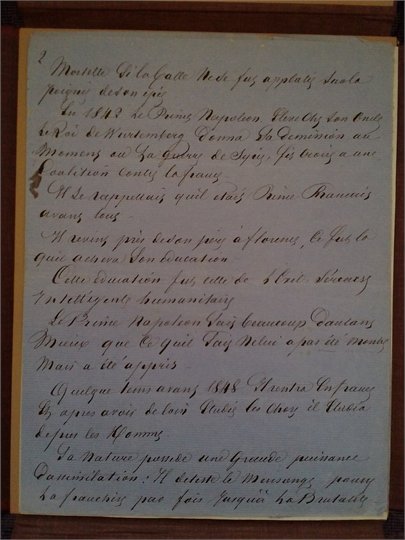 2
Mortelle Si la balle ne se fus applatie sur la
poignée de son épée
En 1842 Le Prince Napoleon Eleve chez Son Oncle
Le Roi de Wurtemberg donna Sa demission au
Moment ou La guerre de Syrie, fis croire a une
Coalition Contre la france
Il se rappellait qu'il etait Prince Francais
avant tous.
Il revins près de son père à florence, Ce fus la
qu'il acheva Son education
Cette éducation fus celle de l'Exil. Sérieuse
Intelligente humanitaire
Le Prince Napoleon Sais beaucoup d'autans
Mieux que Ce quil Sais Ne lui a pas été Montré
Mais a été appris.
Quelque tems avans 1848 Il rentra En france
Et apres avoir de loin Etudié les choses il Etudia
de pres les Hommes
Sa Nature possede une Grande puissance
d'assimilation : Il deteste le Mensonge pousse
La franchise par fois Jusqu'à La Brutalité -